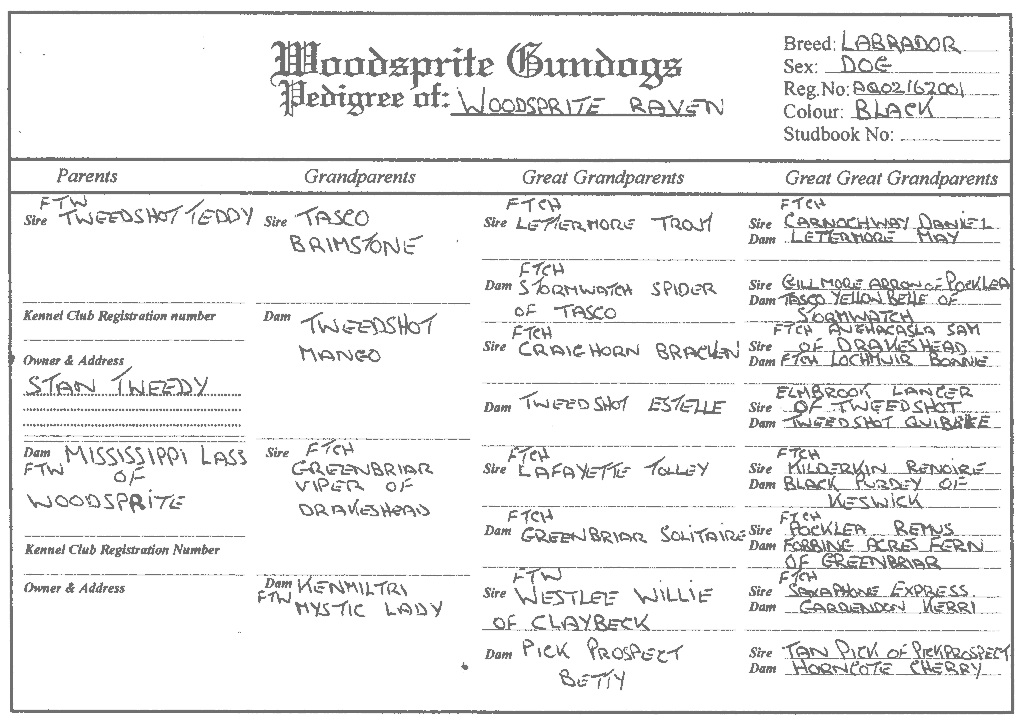 Woodsprite Gundogs
Pedigree of: WOODSPRITE RAVEN
Breed: LABRADOR
Sex: DOG
Reg.No: AQ02167001
Colour: BLACK
Studbook No:
Parents
Grandparents
Great Grandparents
Great Great Grandparents
FTW
Sire TWEEDSHOT TEDDY
Kennel Club Registration number
Owner & Address
STAN TWEEDY
Dam MISSISSIPPI LASS
FTW OF
WOODSPRITE
Kennel Club Registration Number
Owner & Address
Sire TASCO
BRIMSTONE
Dam TWEEDSHOT
MANGO
Sire FTCH
GREENBRIAR
VIPER OF
DRAKESHEAD
Dam KENMILTRI
FTW MYSTIC LADY
FTCH
Sire LETTERMORE TROJT
FTCH
Dam STORMWATCH SPIDER
OF TASCO
FTCH
Sire CRAIGHORN BRACKEN
Dam TWEEDSHOT ESTELLE
FTCH
Sire LAFAYETTE TOLLEY
FTCH
Dam GREENBRIAR SOLITAIRE
FTW
Sire WESTLEE WILLIE
OF CLAYBECK
Dam PICK PROSPECT
BETTY
FTCH
Sire CARNOCHWAY DANIEL
Dam LETTERMORE MAY
Sire GILLMORE ARROW OF POCKLEA
Dam TASCO YELLOW BELLE OF
STORMWATCH
FTCH AUGHACASLA SAM
Sire OF DRAKESHEAD
Dam FTCH LOCHMUIR BONNIE
ELMBROOK LANCER
Sire OF TWEEDSHOT
Dam TWEEDSHOT
FTCH
Sire KILDERKIN RENOIRE
Dam BLACK PURDEY OF
KESWICK
FTCH
Sire POCKLEA REMUS
Dam FORBINE ACRES FERN
OF GREENBRIAR
FTCH
Sire SAXAPHONE EXPRESS
Dam GARRENDON KERRI
Sire TAN PICK OF PICKPROSPECT
Dam HORNCOTE CHERRY